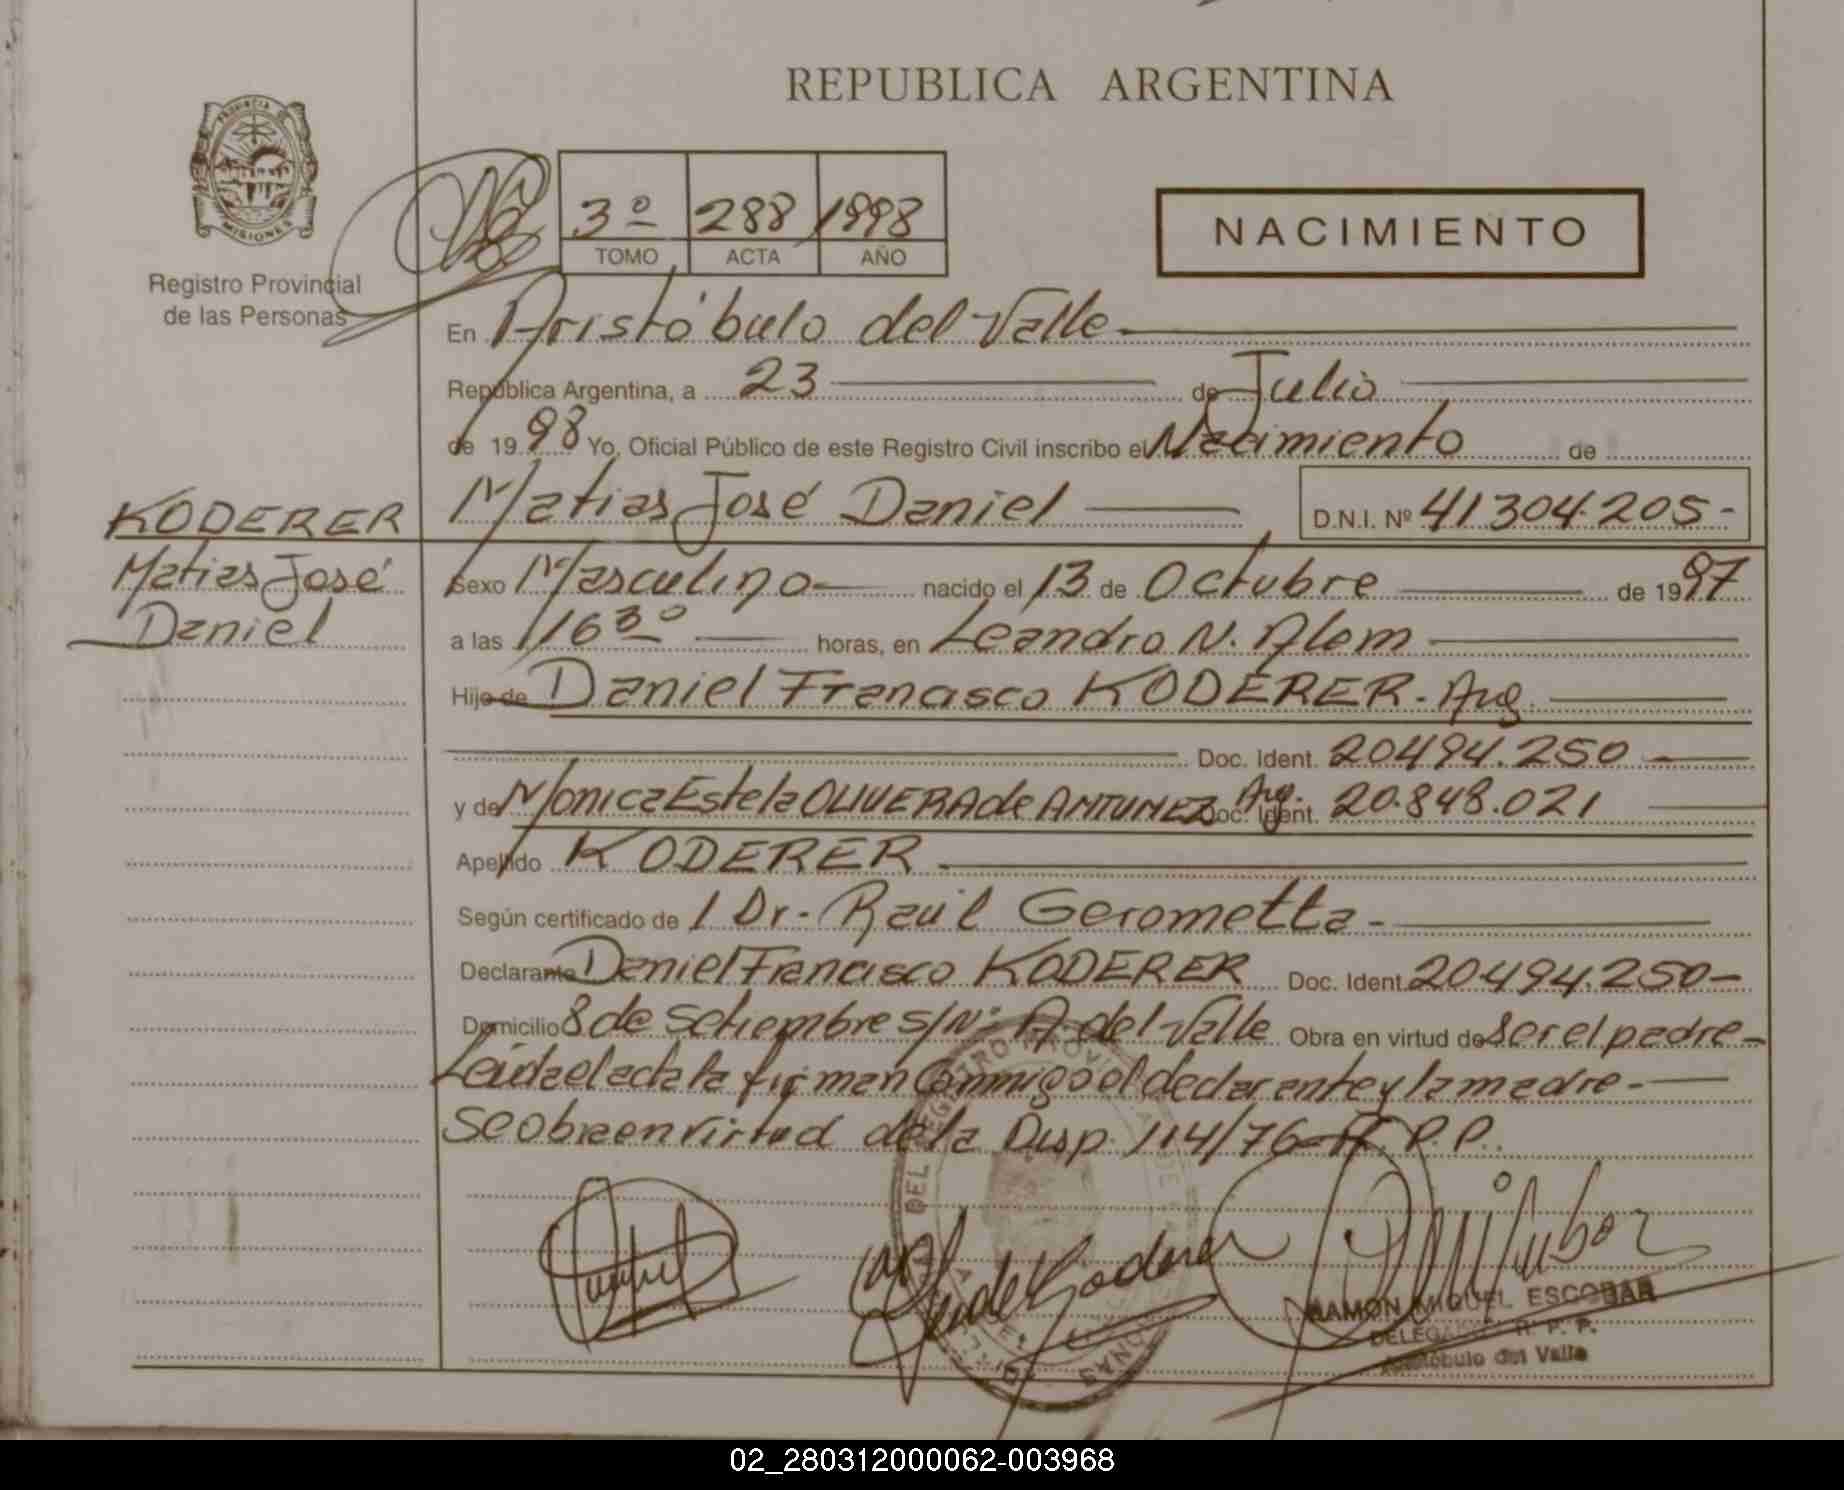 REPUBLICA ARGENTINA
PROVINCIA DE MISIONES
Registro Provincial
de las Personas
3º 288 1998
TOMO ACTA AÑO
NACIMIENTO
En Aristóbulo del Valle
República Argentina, a 23 de Julio
de 1998 Yo, Oficial Público de este Registro Civil inscribo el Nacimiento de
KODERER
Matias José
Daniel
Matias José Daniel D.N.I. Nº 41304.205-
Sexo Masculino nacido el 13 de Octubre de 1997
a las 16 30 horas, en Leandro N. Alem
Hijo de Daniel Francisco KODERER - Arg.
Doc. Ident. 20494.250
y de Monica Estela OLIVERA de ANTUNEZ Arg. Doc. Ident. 20.848.021
Apellido KODERER
Según certificado de 1 Dr. Raúl Gerometta -
Declarante Daniel Francisco KODERER Doc. Ident. 20494.250-
Domicilio 8 de Setiembre s/Nº A. del Valle Obra en virtud de Ser el padre-
Leida el acta la firman Conmigo el declarante y la madre-
Se obra en virtud de la Disp. 114/76 R. P. P.
RAMON MIGUEL ESCOBAR
DELEGADO R. P. P.
Aristóbulo del Valle
02_280312000062-003968